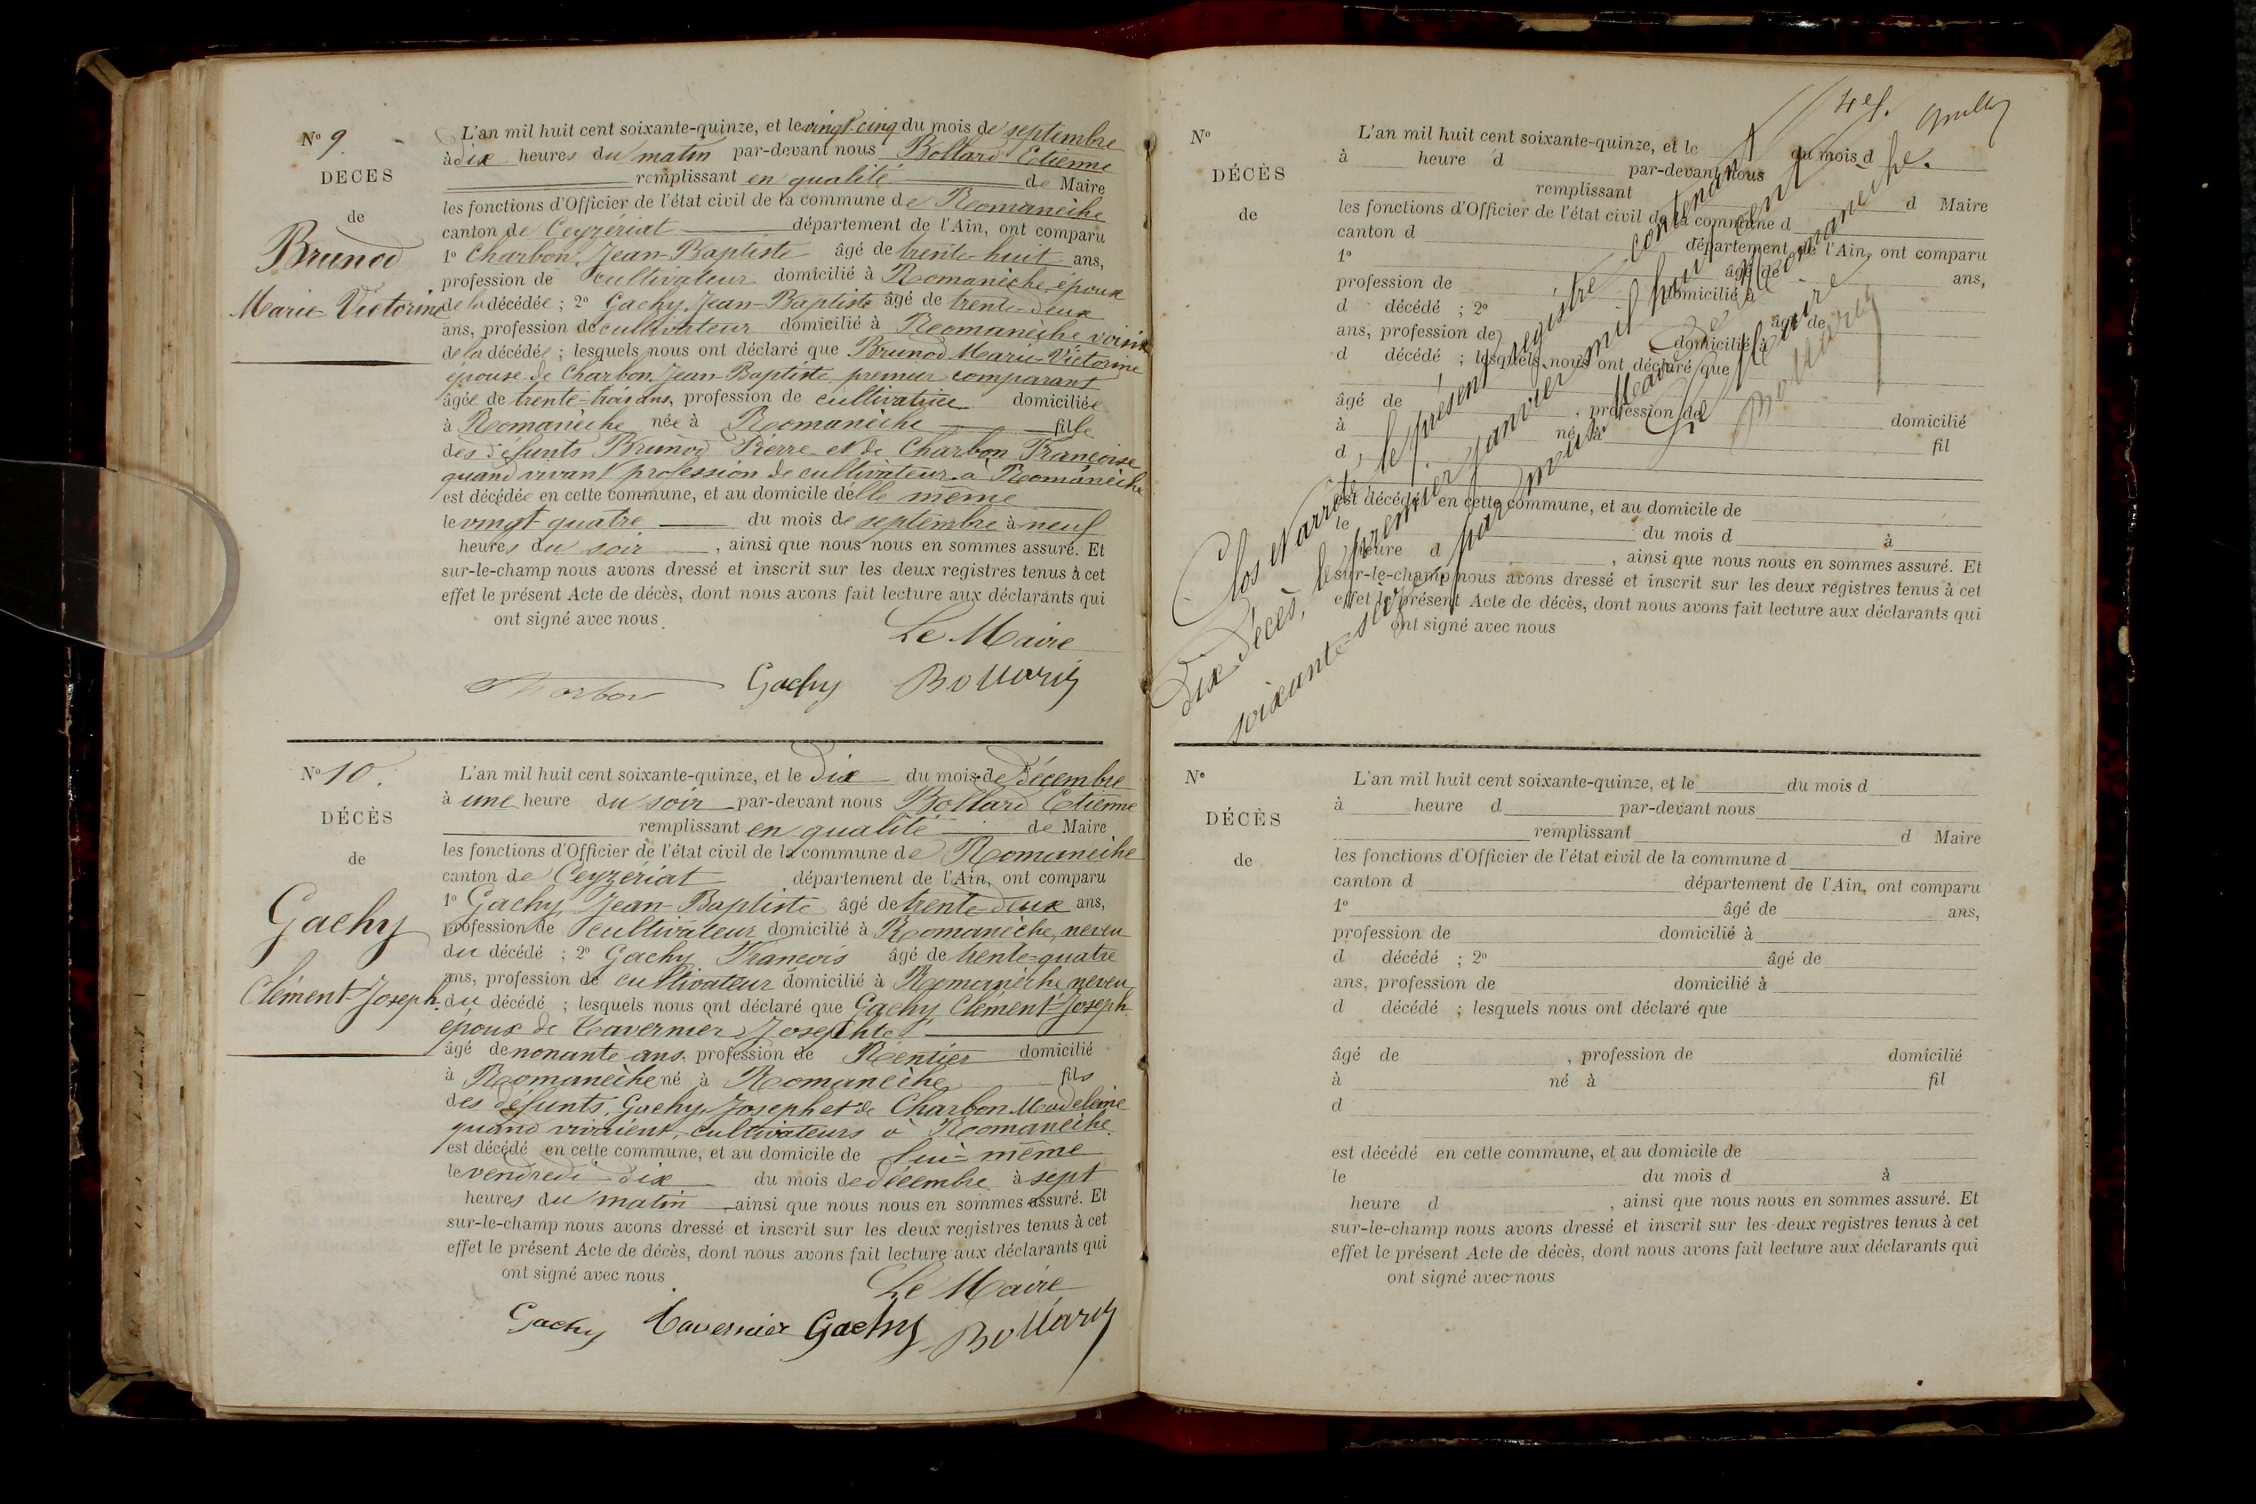 N° 9
DÉCÈS
de
Brunod
Marie-Victorine
L'an mil huit cent soixante-quinze, et le vingt-cinq du mois de septembre
à dix heures du matin par-devant nous Bollard Etienne
remplissant en qualité de Maire
les fonctions d'Officier de l'état civil de la commune de Romanèche
canton de Ceyzériat département de l'Ain, ont comparu
1° Charbon, Jean-Baptiste âgé de trente-huit ans,
profession de cultivateur domicilié à Romanèche, époux
de la décédée ; 2° Gachy, Jean-Baptiste âgé de trente-deux
ans, profession de cultivateur domicilié à Romanèche voisin
de la décédée ; lesquels nous ont déclaré que Brunod Marie-Victorine
épouse de Charbon Jean-Baptiste, premier comparant
âgée de trente-trois ans, profession de cultivatrice domiciliée
à Romanèche née à Romanèche fille
des défunts Brunod Pierre et de Charbon Françoise
quand vivant profession de cultivateur à Romanèche
est décédée en cette commune, et au domicile d'elle même
le vingt quatre du mois de septembre à neuf
heures du soir , ainsi que nous nous en sommes assuré. Et
sur-le-champ nous avons dressé et inscrit sur les deux registres tenus à cet
effet le présent Acte de décès, dont nous avons fait lecture aux déclarants qui
ont signé avec nous.
Le Maire
Charbon Gachy Bollard
N° 10.
DÉCÈS
de
Gachy
Clément-Joseph.
L'an mil huit cent soixante-quinze, et le dix du mois de décembre
à une heure du soir par-devant nous Bollard Etienne
remplissant en qualité de Maire
les fonctions d'Officier de l'état civil de la commune de Romanèche
canton de Ceyzériat département de l'Ain, ont comparu
1° Gachy Jean-Baptiste âgé de trente-deux ans,
profession de cultivateur domicilié à Romanèche, neveu
du décédé ; 2° Gachy François âgé de trente-quatre
ans, profession de cultivateur domicilié à Romanèche neveu
du décédé ; lesquels nous ont déclaré que Gachy Clément-Joseph
époux de Tavernier Josephte
âgé de nonante ans, profession de Rentier domicilié
à Romanèche né à Romanèche fils
des défunts, Gachy Joseph et de Charbon Madeleine
quand vivaient, cultivateurs à Romanèche.
est décédé en cette commune, et au domicile de lui-même
le vendredi dix du mois de décembre à sept
heures du matin ainsi que nous nous en sommes assuré. Et
sur-le-champ nous avons dressé et inscrit sur les deux registres tenus à cet
effet le présent Acte de décès, dont nous avons fait lecture aux déclarants qui
ont signé avec nous
Le Maire
Gachy Tavernier Gachy Bollard
N°
DÉCÈS
de
L'an mil huit cent soixante-quinze, et le du mois d
à heure d par-devant nous
remplissant d Maire
les fonctions d'Officier de l'état civil de la commune d
canton d département de l'Ain, ont comparu
1° âgé de ans,
profession de domicilié à
d décédé ; 2° âgé de
ans, profession de domicilié à
d décédé ; lesquels nous ont déclaré que
âgé de , profession de domicilié
à né à fil
d
est décédé en cette commune, et au domicile de
le du mois d à
heure d , ainsi que nous nous en sommes assuré. Et
sur-le-champ nous avons dressé et inscrit sur les deux registres tenus à cet
effet le présent Acte de décès, dont nous avons fait lecture aux déclarants qui
ont signé avec nous
Clos et arrêté, le présent registre contenant
dix décès, le premier janvier mil huit cent
soixante-seize par nous Maire de Romanèche.
Le Maire
Bollard
N°
DÉCÈS
de
L'an mil huit cent soixante-quinze, et le du mois d
à heure d par-devant nous
remplissant d Maire
les fonctions d'Officier de l'état civil de la commune d
canton d département de l'Ain, ont comparu
1° âgé de ans,
profession de domicilié à
d décédé ; 2° âgé de
ans, profession de domicilié à
d décédé ; lesquels nous ont déclaré que
âgé de , profession de domicilié
à né à fil
d
est décédé en cette commune, et au domicile de
le du mois d à
heure d , ainsi que nous nous en sommes assuré. Et
sur-le-champ nous avons dressé et inscrit sur les deux registres tenus à cet
effet le présent Acte de décès, dont nous avons fait lecture aux déclarants qui
ont signé avec nous